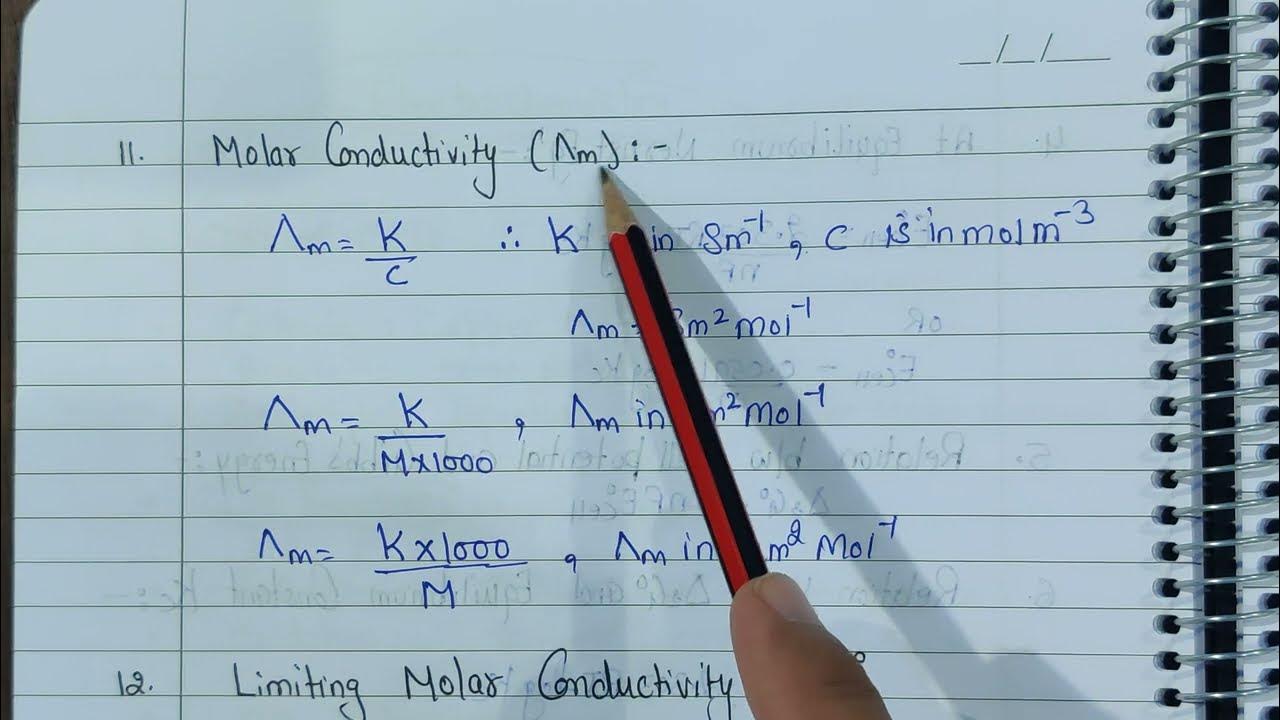 __/__/__
11. Molar Conductivity (Λm) :-
Λm = K/C ∴ K in Sm⁻¹, C is in mol m⁻³
Λm m² mol⁻¹
Λm = K/M×1000 , Λm in m² mol⁻¹
Λm = K×1000/M , Λm in m² Mol⁻¹
12. Limiting Molar Conductivity